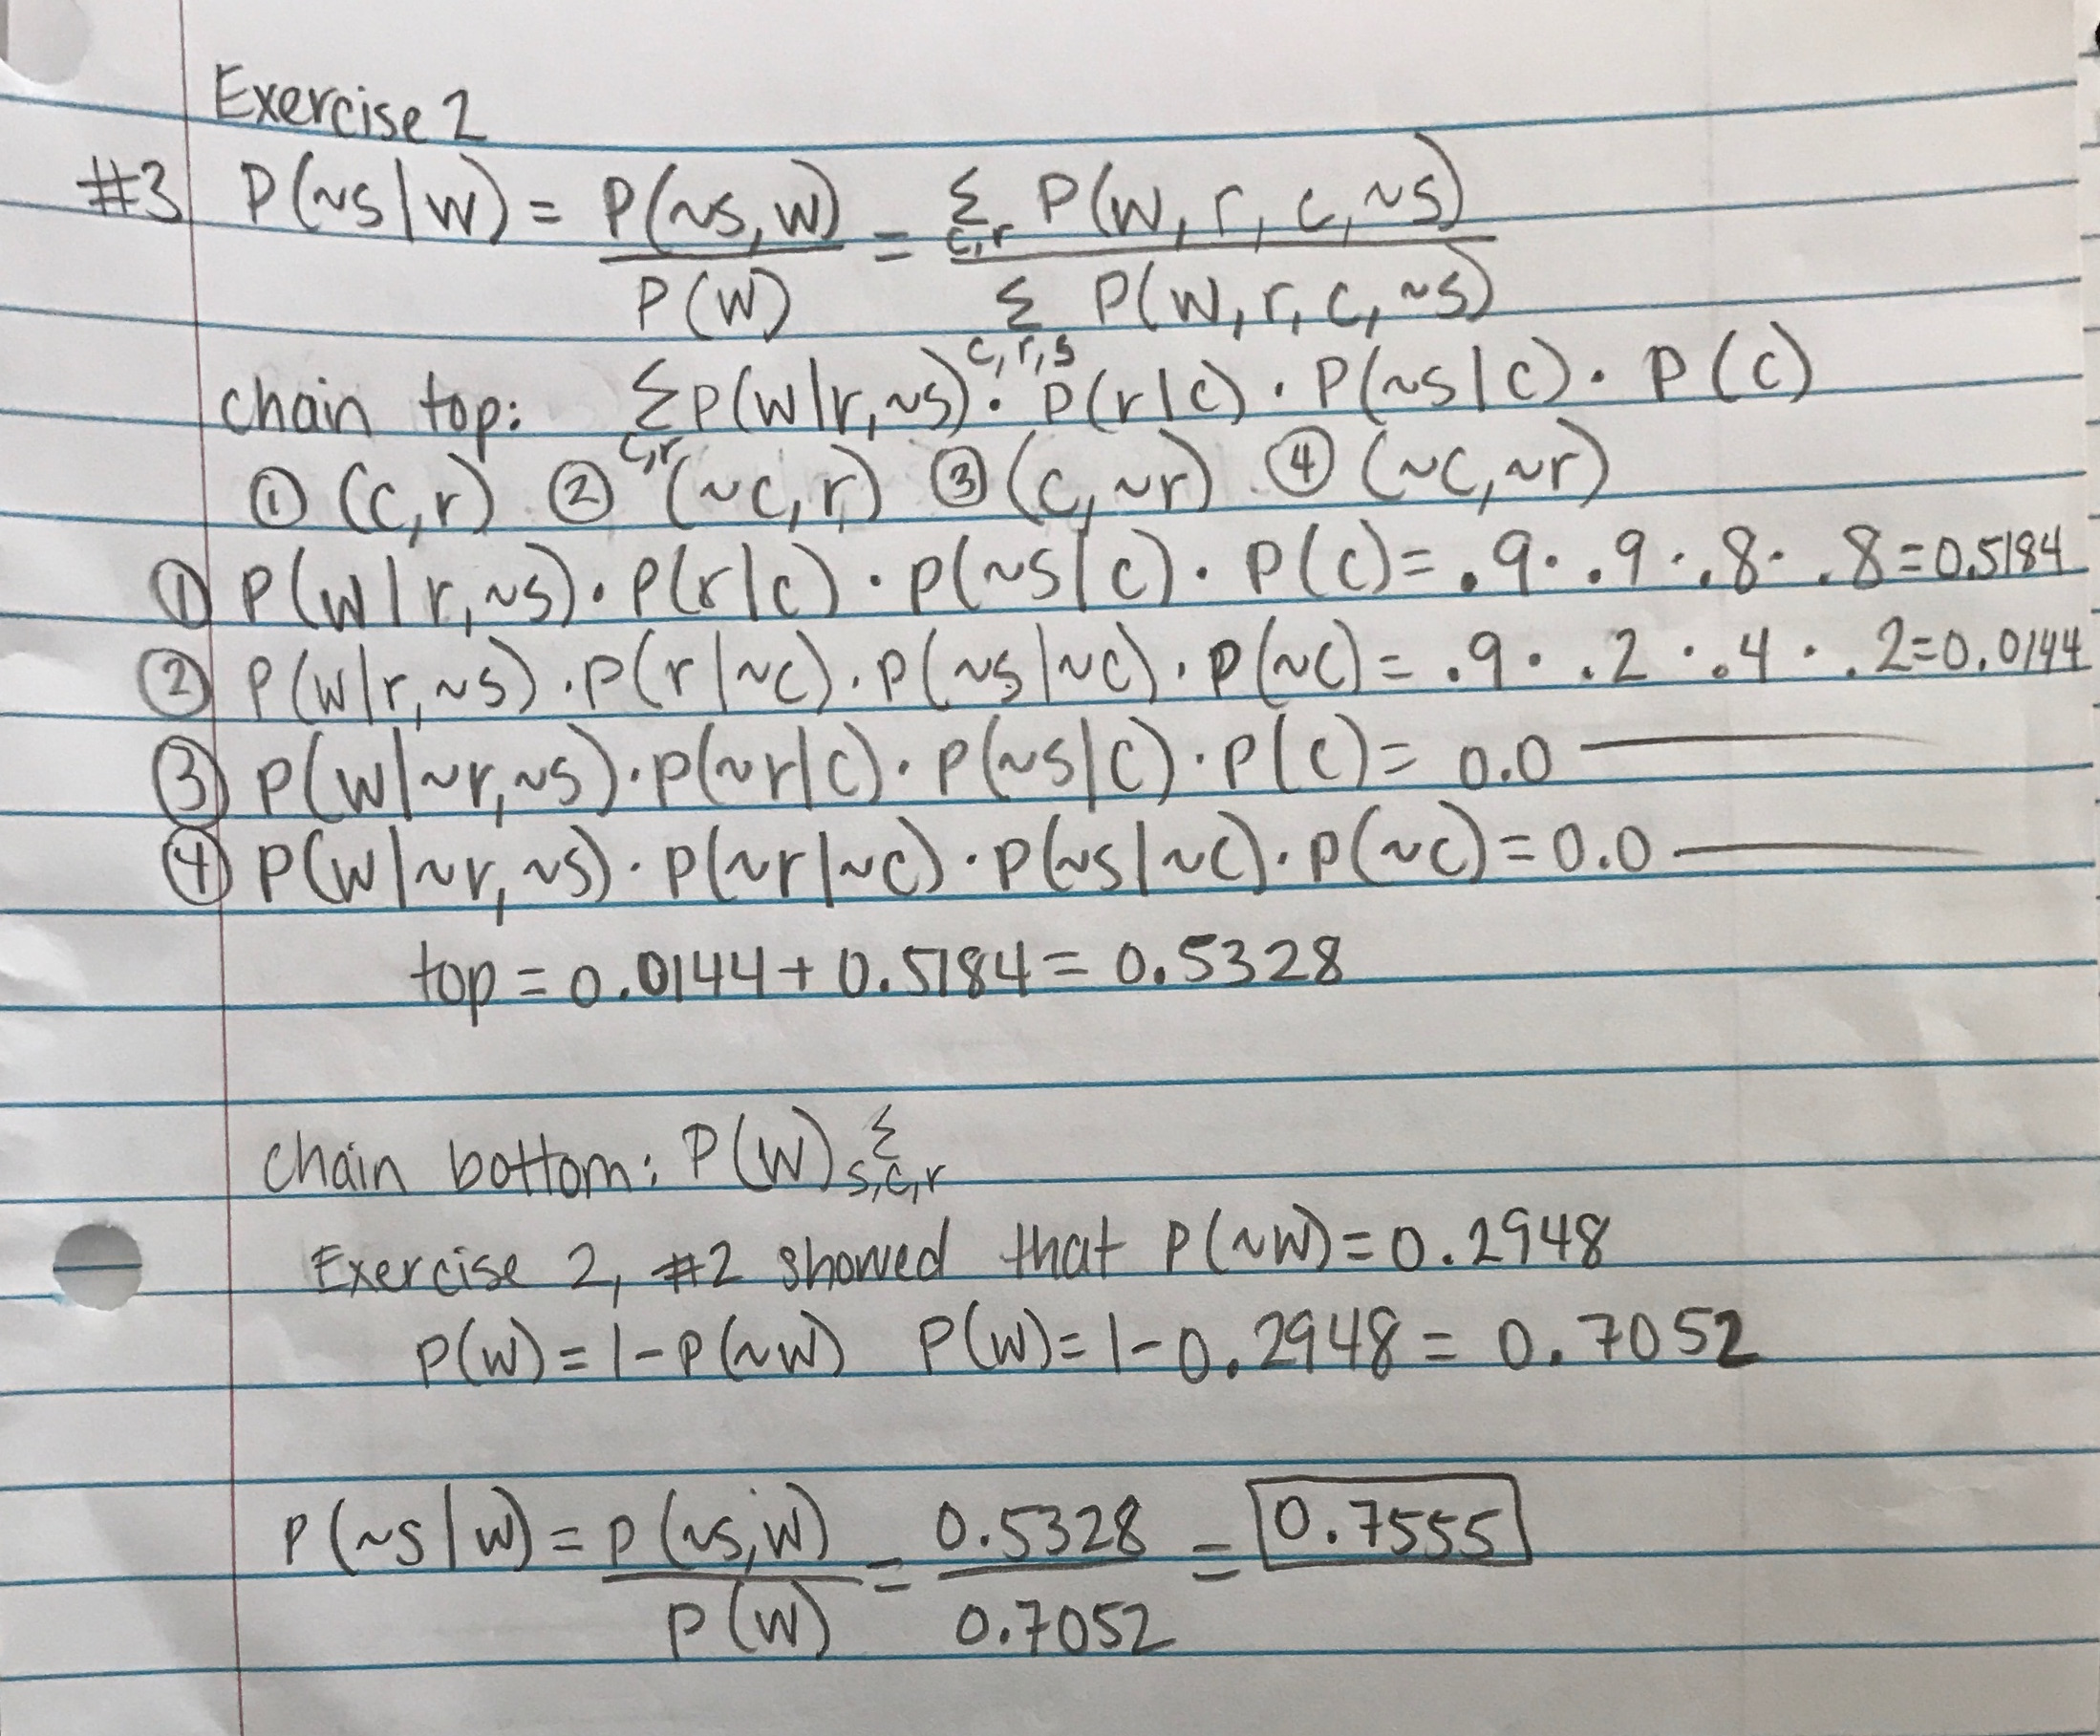 Exercise 2
#3 P(~s|w) = P(~s,w) / P(w) = Σ_{c,r} P(w,r,c,~s) / Σ_{c,r,s} P(w,r,c,~s)
chain top: Σ_{c,r} P(w|r,~s) · P(r|c) · P(~s|c) · P(c)
① (c,r) ② (~c,r) ③ (c,~r) ④ (~c,~r)
① P(w|r,~s) · P(r|c) · P(~s|c) · P(c) = .9 · .9 · .8 · .8 = 0.5184
② P(w|r,~s) · P(r|~c) · P(~s|~c) · P(~c) = .9 · .2 · .4 · .2 = 0.0144
③ P(w|~r,~s) · P(~r|c) · P(~s|c) · P(c) = 0.0
④ P(w|~r,~s) · P(~r|~c) · P(~s|~c) · P(~c) = 0.0
top = 0.0144 + 0.5184 = 0.5328
chain bottom: P(w) Σ_{s,c,r}
Exercise 2, #2 showed that P(~w) = 0.2948
P(w) = 1 - P(~w) P(w) = 1 - 0.2948 = 0.7052
P(~s|w) = P(~s,w) / P(w) = 0.5328 / 0.7052 = 0.7555